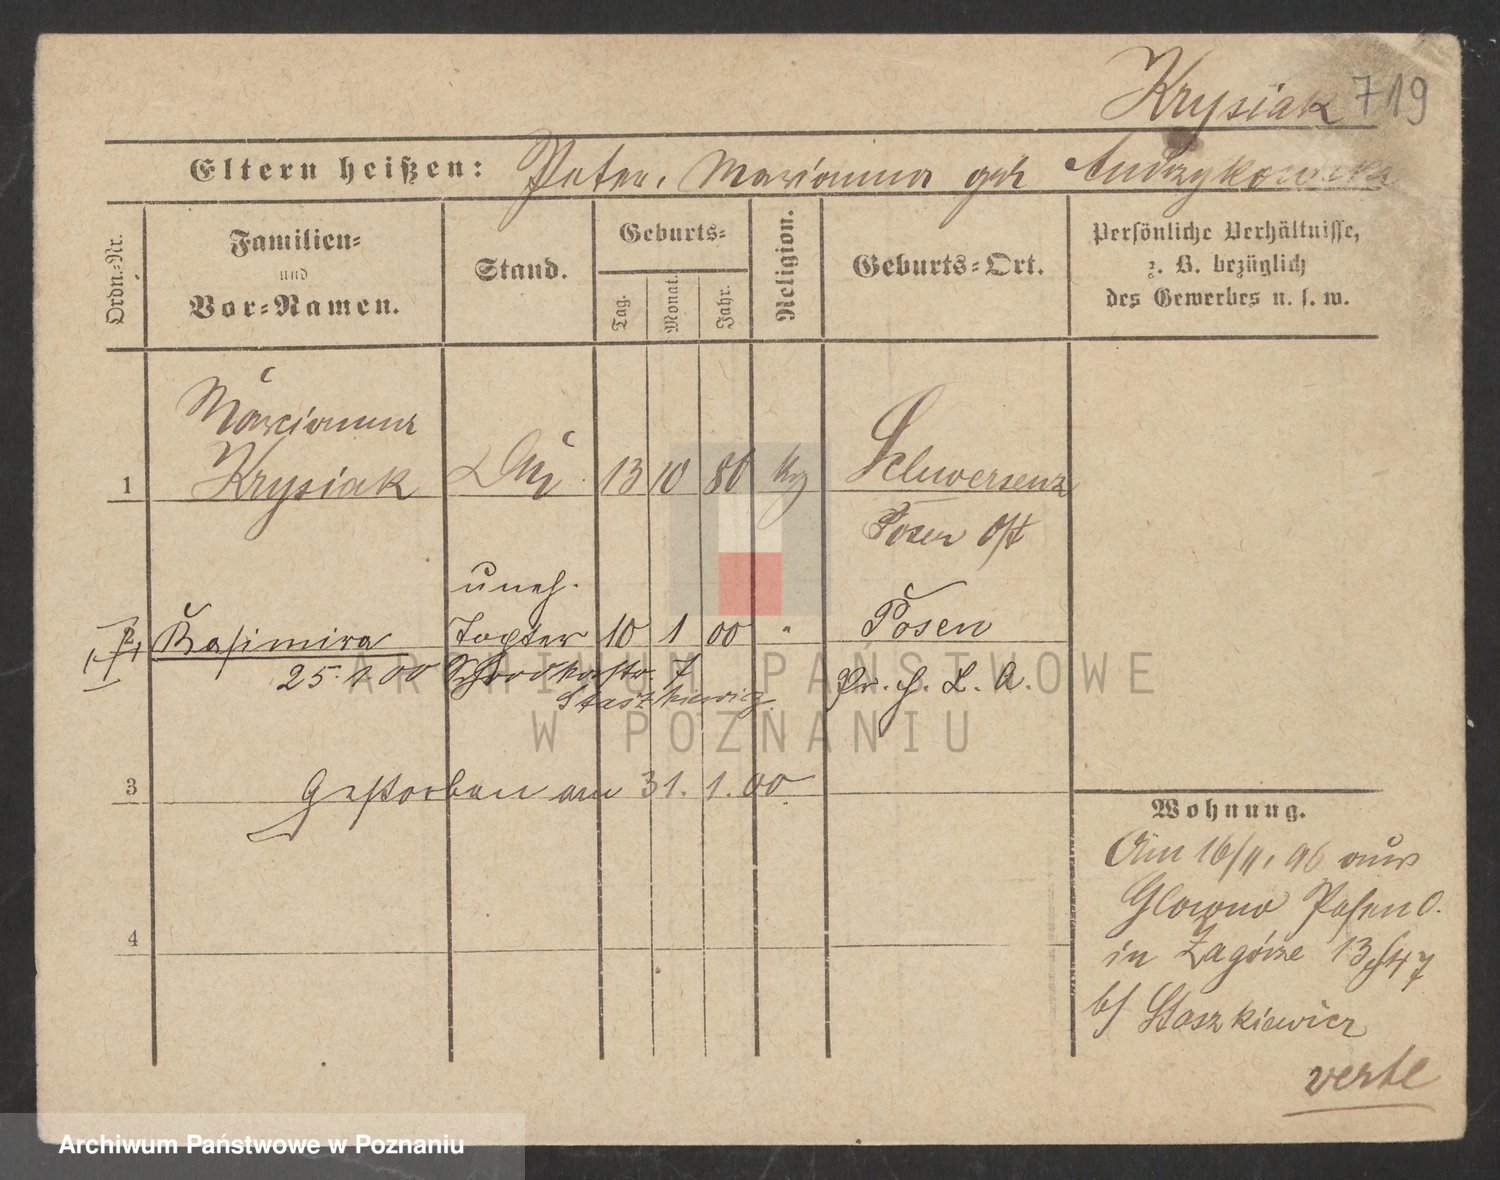 Krysiak 719
Eltern heißen: Peter, Marianna geb Andrzykowska
Ordn.-Nr.
Familien-
und
Vor-Namen.
Stand.
Geburts-
Tag.
Monat.
Jahr.
Religion.
Geburts-Ort.
Persönliche Verhältnisse,
z. B. bezüglich
des Gewerbes u. s. w.
Marianna
1 Krysiak 13 10 80 Schwersenz
Posen Ost
uneh.
2 Kasimira Tochter 10 1 00 " Posen
25.1.00 7
Staszkiewicz
3 Gestorben am 31.1.00
4
Wohnung.
Am 16/11.96 aus
Glowno Posen O.
in Zagórze 13
b/ Staszkiewicz
verte
ARCHIWUM PAŃSTWOWE
W POZNANIU
Archiwum Państwowe w Poznaniu